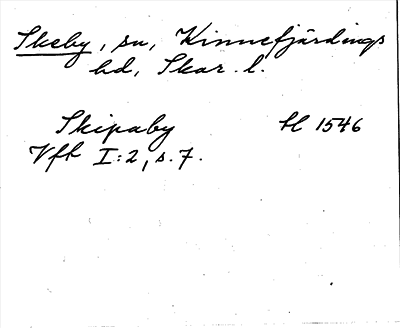 Skeby, sn, Kinnefjärdings
hd, Skar. l.
Skipaby hl 1546
Vft I:2, s. 7.